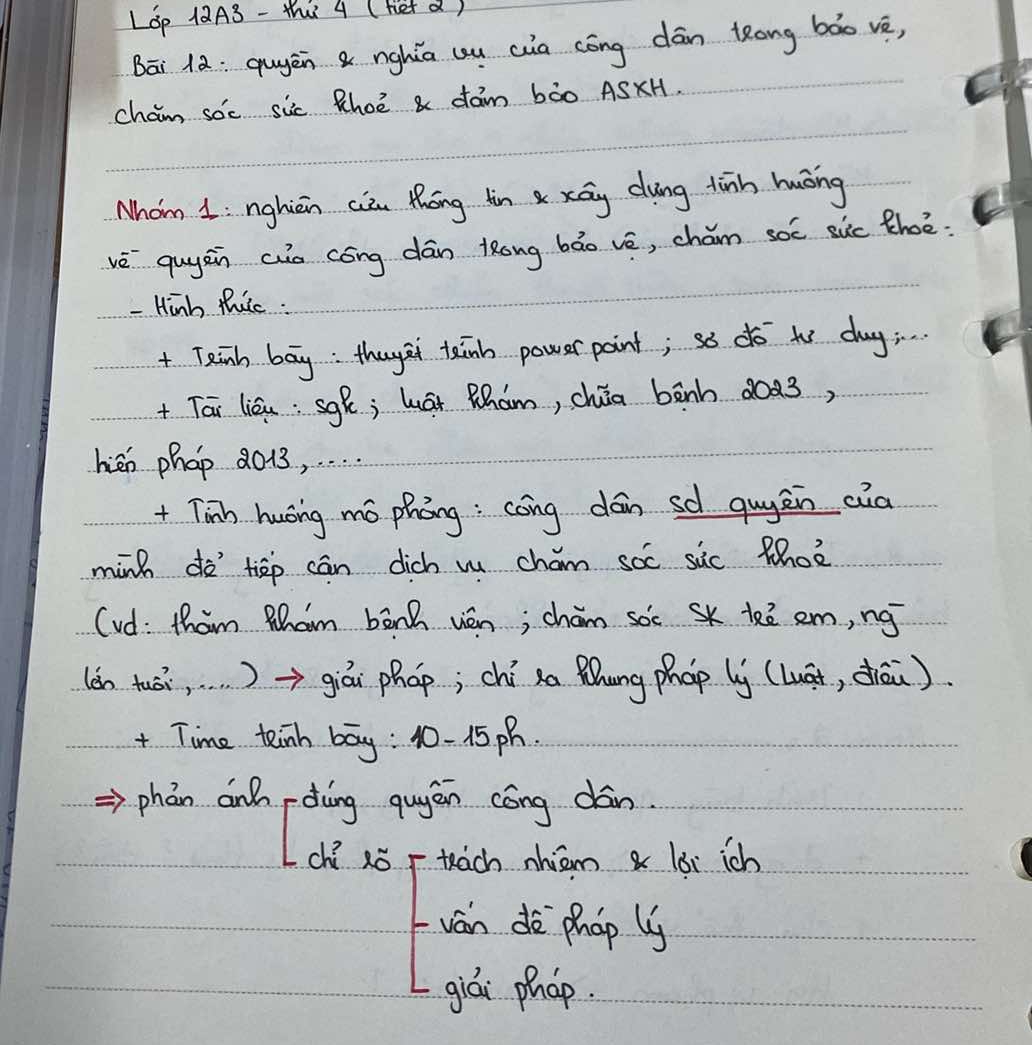 Lớp 12A3 - thứ 4 (tiết 2)
Bài 12: quyền & nghĩa vụ của công dân trong bảo vệ,
chăm sóc sức khoẻ & đảm bảo ASXH.
Nhóm 1: nghiên cứu thông tin & xây dựng tình huống
về quyền của công dân trong bảo vệ, chăm sóc sức khoẻ:
- Hình thức:
+ Trình bày: thuyết trình power point; sơ đồ tư duy;...
+ Tài liệu: sgk; luật khám, chữa bệnh 2023,
hiến pháp 2013,....
+ Tình huống mô phỏng: công dân sd quyền của
mình để tiếp cận dịch vụ chăm sóc sức khoẻ
(vd: thăm khám bệnh viện; chăm sóc SK trẻ em, ng
lớn tuổi,....) → giải pháp; chỉ ra khung pháp lý (luật, điều).
+ Time trình bày: 10-15 ph.
⇒ phản ánh đúng quyền công dân.
chỉ rõ trách nhiệm & lợi ích
vấn đề pháp lý
giải pháp.